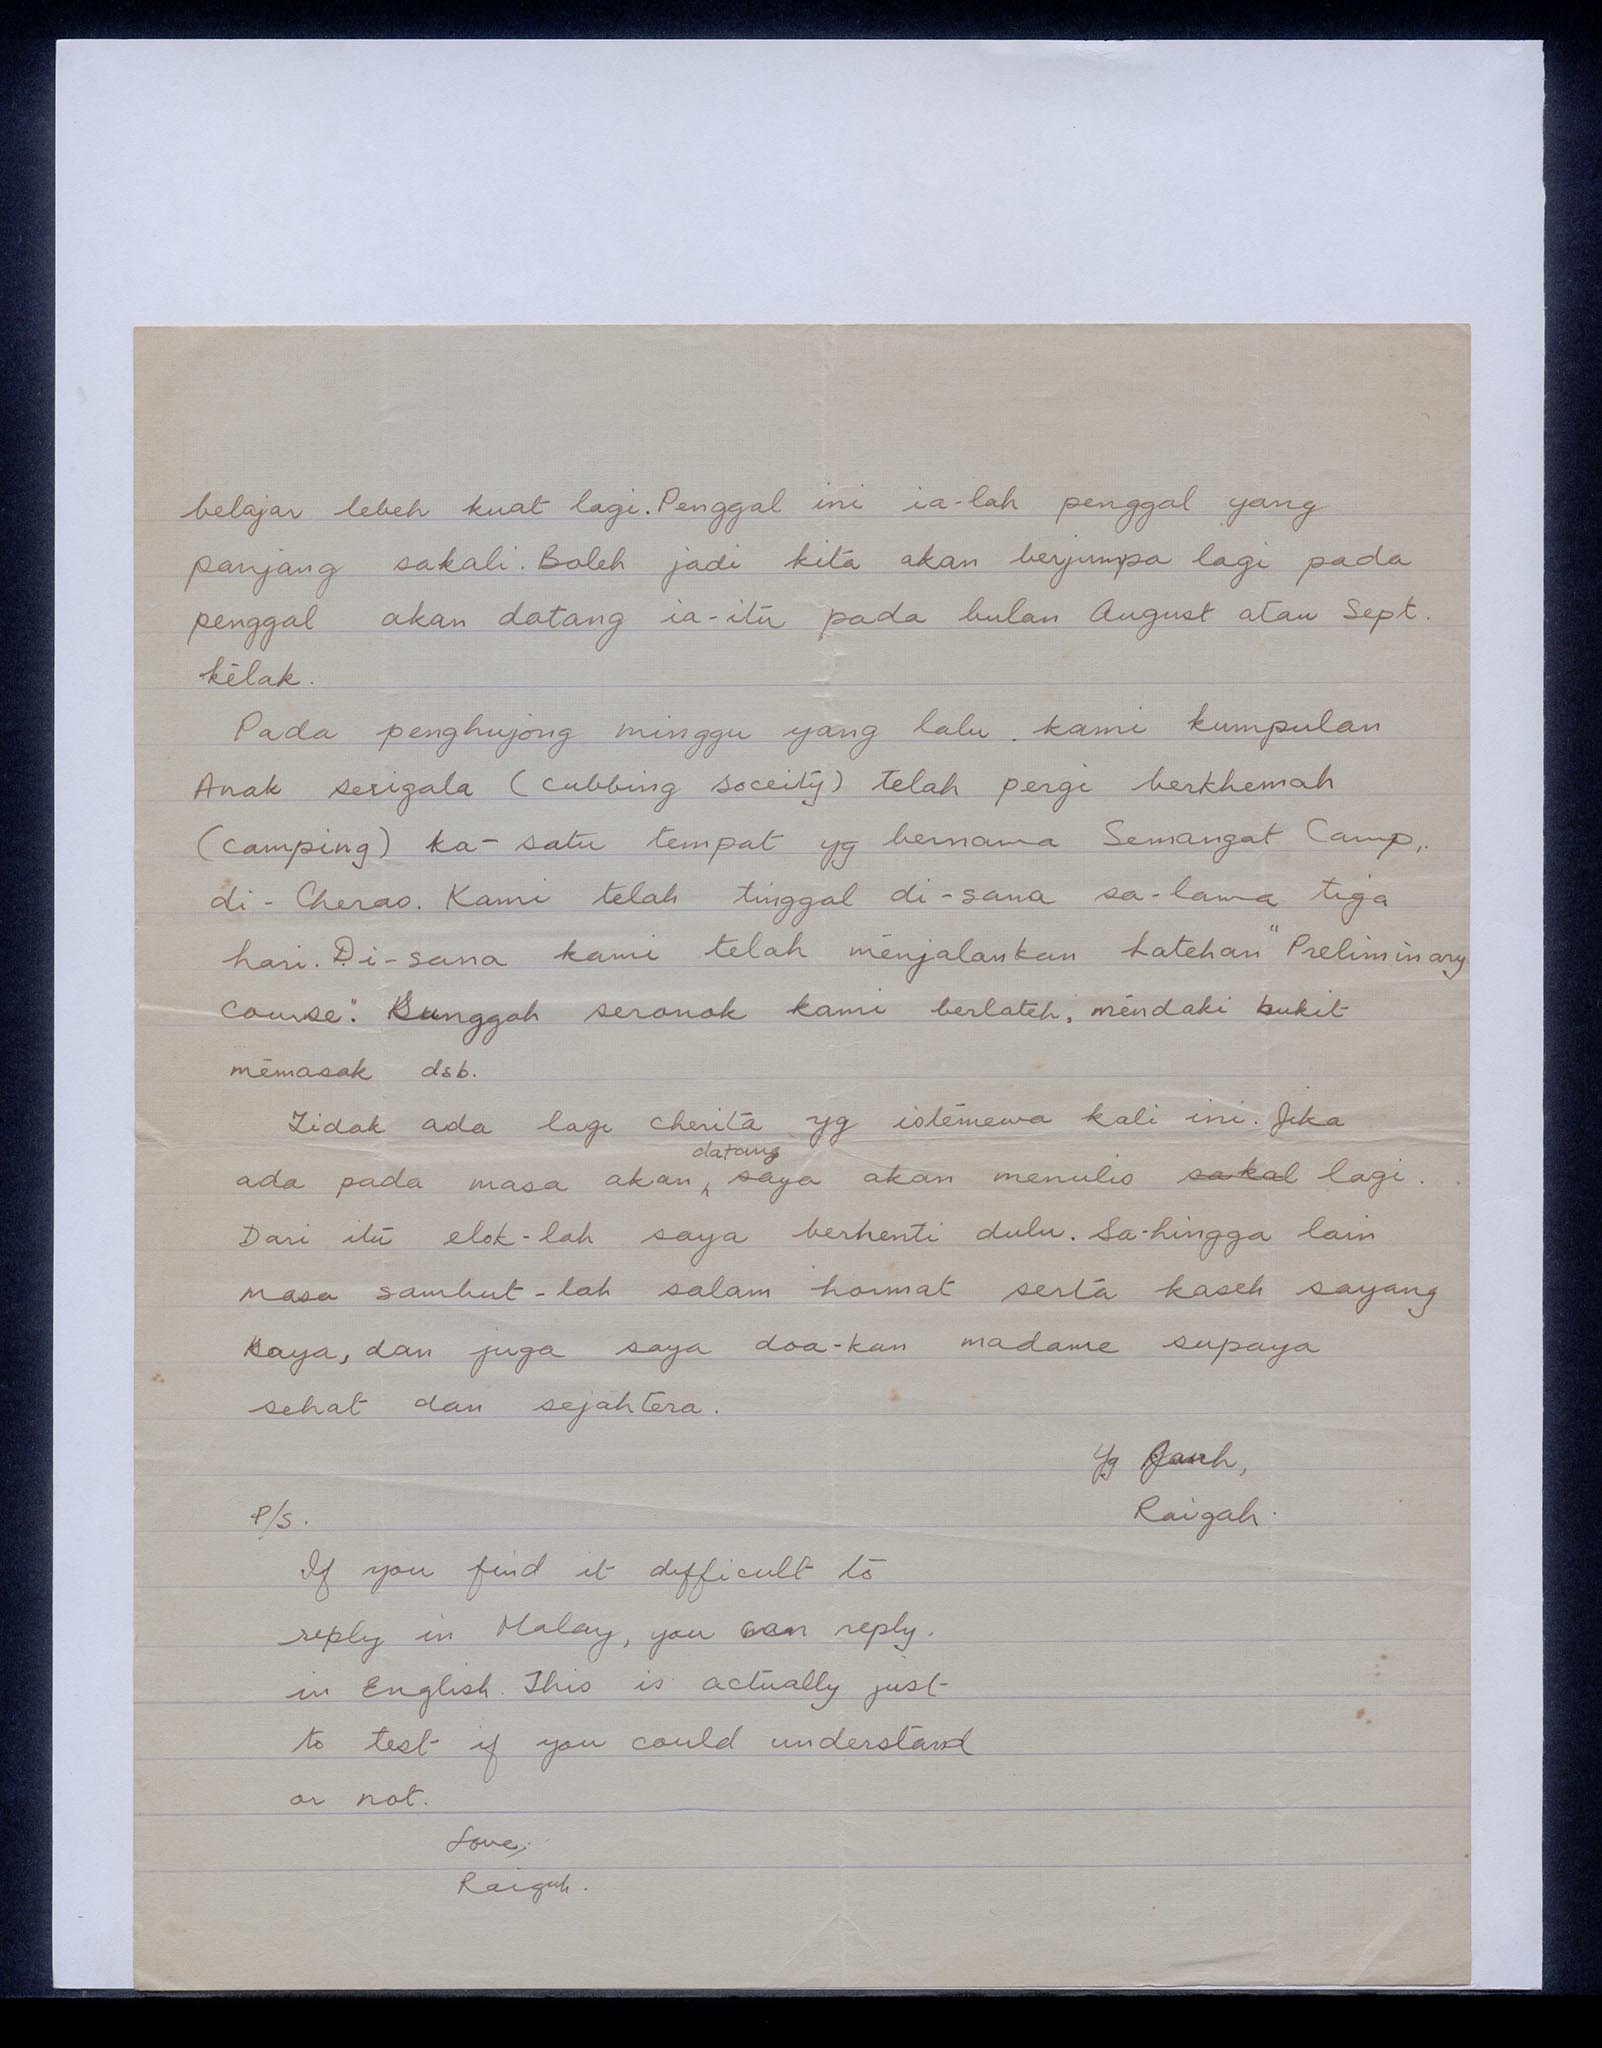 belajar lebeh kuat lagi. Penggal ini ia-lah penggal yang
panjang sakali. Boleh jadi kita akan berjumpa lagi pada
penggal akan datang ia-itu pada bulan August atau Sept.
kelak.
Pada penghujong minggu yang lalu, kami kumpulan
Anak serigala (cubbing soceity) telah pergi berkhemah
(camping) ka-satu tempat yg bernama Semangat Camp,
di-Cheras. Kami telah tinggal di-sana sa-lama tiga
hari. Di-sana kami telah menjalankan latehan "Preliminary
course". Sunggoh seronok kami berlateh, mendaki bukit
memasak dsb.
Tidak ada lagi cherita yg istemewa kali ini. Jika
ada pada masa akan datang saya akan menulis sakal lagi.
Dari itu elok-lah saya berhenti dulu. Sa-hingga lain
masa sambut-lah salam hormat serta kaseh sayang
saya, dan juga saya doa-kan madame supaya
sehat dan sejahtera.
Yg Jauh,
Raigah.
P/s.
If you find it difficult to
reply in Malay, you can reply.
in English. This is actually just
to test if you could understand
or not.
Love,
Raigah.